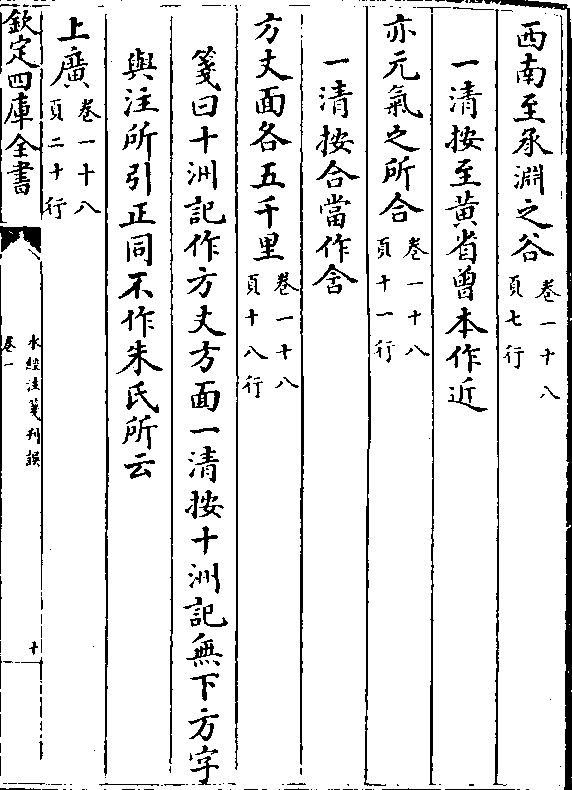 西南至承淵之谷卷一十八頁七行
一清按至黄省曾本作近
亦元氣之所合卷一十八頁十一行
一清按合當作舍
方丈面各五千里卷一十八頁十八行
箋曰十洲記作方丈方面一清按十洲記無下方字
與注所引正同不作朱氏所云
上廣卷一十八頁二十行
欽定四庫全書
水經注箋刋誤
卷一
十